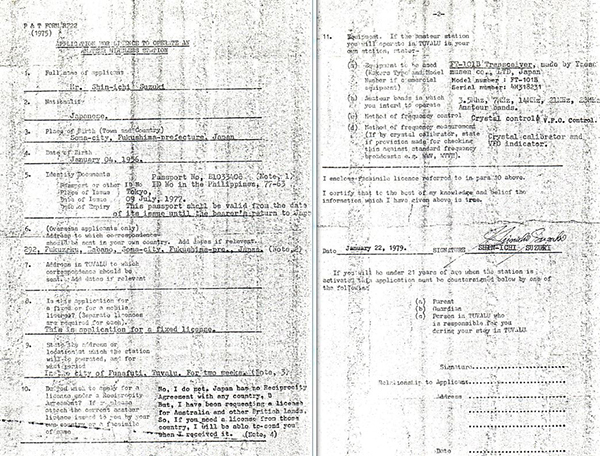 P A T FORM R722
(1975)
APPLICATION FOR LICENCE TO OPERATE AN
AMATEUR WIRELESS STATION
1. Full names of applicant
Mr. Shin-ichi Suzuki
2. Nationality
Japanese.
3. Place of Birth (Town and Country)
Soma-city, Fukushima-prefecture, Japan
4. Date of Birth
January 04, 1956.
5. Identity Documents
Passport No. (Note, 1)
Passport or other ID No ID No in the Philippines, 77-63
Place of Issue Tokyo,
Date of Issue 09 July, 1977.
Date of Expiry This passport shall be valid from the date
of its issue until the bearer's return to Jap
6. (Overseas applicants only)
Address to which correspondence
should be sent in your own country. Add dates if relevant.
Soma-city, Japan. (Note, 2)
7. Address in TUVALU to which
correspondence should be
sent. Add dates if relevant
8. Is this application for
a fixed or for a mobile
licence? (Separate licences
are required for each).
This is application for a fixed licence.
9. State the address or
location at which the station
will be operated, and for
what period
In the city of Funafuti, Tuvalu. For two weeks. (Note, 3)
10. Do you wish to apply for a No, I do not. Japan has no Reciprocity
licence under a Reciprocity Agreement with any country,
Agreement? If so please But, I have been requesting a license
attach the current amateur for Australia and other British lands.
licence issued to you by your So, If you need a license from those
own country or a facsimile country, I will be able to send you
of same when I received it. (Note, 4)
-2-
11. Equipment. If the amateur station
you will operate in TUVALU is your
own station, state:-
(a) Equipment to be used FT-101B Transceiver, made by Yaesu
(Makers Type and Model musen co., LTD, Japan
Number if commercial Model number : FT-101B
equipment) Serial number:
(b) Amateur bands in which 3.5MHz, 7MHz, 14MHz, 21MHz,
you intend to operate Amateur bands.
(c) Method of frequency control Crystal control & V.F.O. Control.
(d) Method of frequency measurement
(If by crystal calibrator, state Crystal calibrator and
if provision made for checking VFO indicator.
this against standard frequency
broadcasts e.g. WWV, WWVH).
I enclose facsimile licence referred to in para 10 above.
I certify that to the best of my knowledge and belief the
information which I have given above is true.
Date January 22, 1979. SIGNATURE Shinichi Suzuki
SHIN-ICHI SUZUKI
If you will be under 21 years of age when the station is
activated this application must be countersigned below by one of
the following
(a) Parent
(b) Guardian
(c) Person in TUVALU who
is responsible for you
during your stay in TUVALU.
Signature
Relationship to Applicant
Address
Date